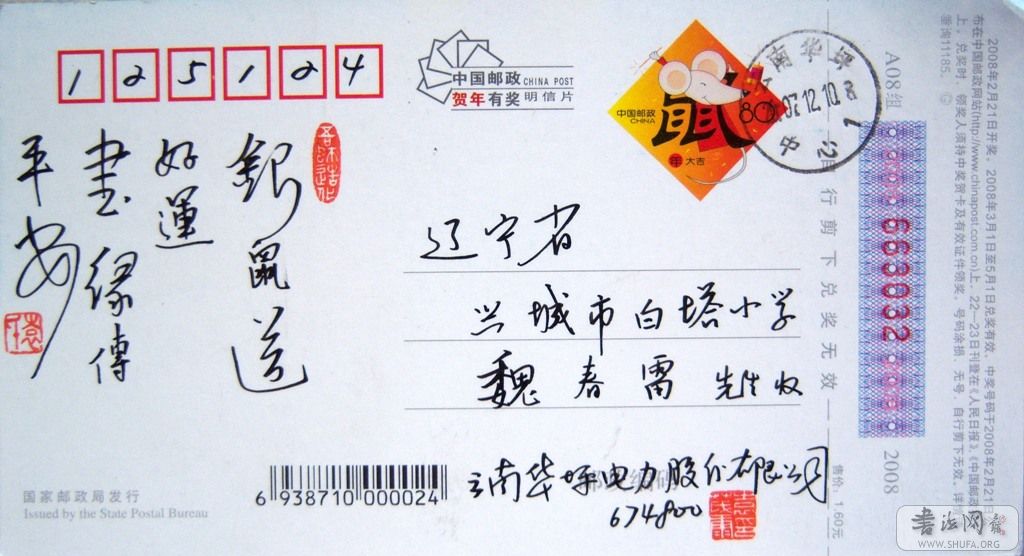 125124
中国邮政 CHINA POST
贺年有奖 明信片
中国邮政
CHINA
鼠
年 大吉
80分
07.12.10.
A08组
663032
2008
銀鼠送
好運
書缘傳
平安
辽宁省
兴城市白塔小学
魏春雷 先生收
云南华坪电力股份有限公司
674800
邮政编码
6 938710 000024
国家邮政局发行
Issued by the State Postal Bureau
售价:1.60元
自行剪下兑奖无效
2008年2月21日开奖。2008年3月1日至5月1日兑奖有效。中奖号码于2008年2月21日
布在中国邮政网站(http://www.chinapost.com.cn)上,22—23日刊登在《人民日报》、《中国邮政
上。兑奖时,领奖人须持中奖贺卡及有效证件领奖。号码涂损、无号、自行剪下无效。详情
垂询11185。
書法网
WWW.SHUFA.ORG